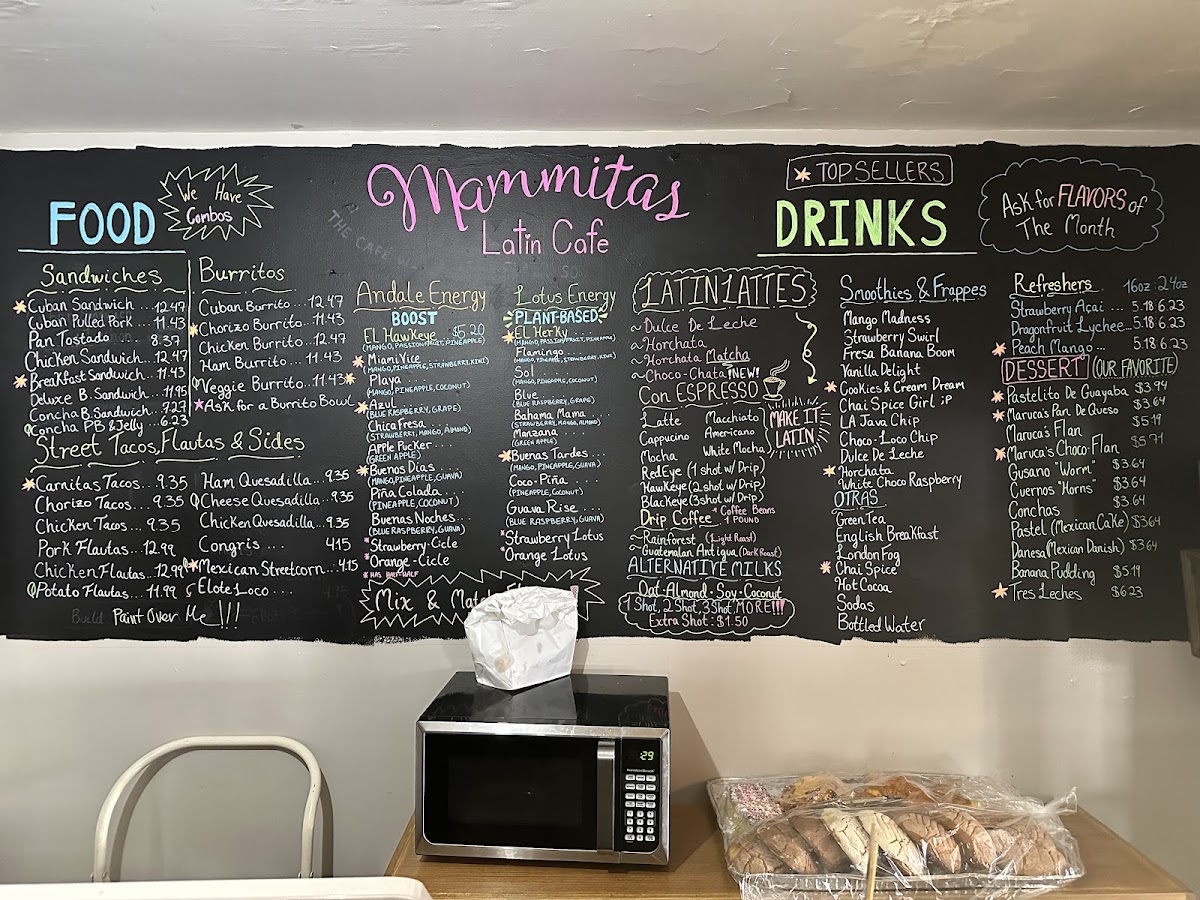 We Have
Combos
FOOD
Sandwiches
Cuban Sandwich.... 12.47
Cuban Pulled Pork ... 11.43
Pan Tostado ... 8.37
Chicken Sandwich... 12.47
Breakfast Sandwich... 11.43
Deluxe B. Sandwich... 11.95
Concha B. Sandwich.... 7.27
Concha PB & Jelly ... 6.23
Burritos
Cuban Burrito... 12.47
Chorizo Burrito... 11.43
Chicken Burrito... 12.47
Ham Burrito... 11.43
Veggie Burrito... 11.43
Ask for a Burrito Bowl
Street Tacos, Flautas & Sides
Carnitas Tacos... 9.35
Chorizo Tacos... 9.35
Chicken Tacos... 9.35
Pork Flautas... 12.99
Chicken Flautas... 12.99
Potato Flautas... 11.99
Ham Quesadilla... 9.35
Cheese Quesadilla... 9.35
Chicken Quesadilla... 9.35
Congris .... 4.15
Mexican Streetcorn... 4.15
Elote Loco....
Build Paint Over Me !!!
Mammitas
Latin Cafe
THE CAFE
Andale Energy
BOOST
El Hawkeye $5.20
(MANGO, PASSION FRUIT, PINEAPPLE)
Miami Vice...
(MANGO, PINEAPPLE, STRAWBERRY, KIWI)
Playa ....
(MANGO, PINEAPPLE, COCONUT)
Azul ....
(BLUE RASPBERRY, GRAPE)
Chica Fresa ...
(STRAWBERRY, MANGO, ALMOND)
Apple Pucker...
(GREEN APPLE)
Buenos Dias ....
(MANGO, PINEAPPLE, GUAVA)
Piña Colada....
(PINEAPPLE, COCONUT)
Buenas Noches...
(BLUE RASPBERRY, GUAVA)
Strawberry-Cicle
Orange-Cicle
* HAS HALF HALF
Lotus Energy
PLANT-BASED
El Herky...
(MANGO, PASSION FRUIT, PINEAPPLE)
Flamingo....
(MANGO, PINEAPPLE, STRAWBERRY, KIWI)
Sol ....
(MANGO, PINEAPPLE, COCONUT)
Blue....
(BLUE RASPBERRY, GRAPE)
Bahama Mama....
(STRAWBERRY, MANGO, ALMOND)
Manzana....
(GREEN APPLE)
Buenas Tardes...
(MANGO, PINEAPPLE, GUAVA)
Coco-Piña....
(PINEAPPLE, COCONUT)
Guava Rise....
(BLUE RASPBERRY, GUAVA)
Strawberry Lotus
Orange Lotus
Mix &
TOP SELLERS
DRINKS
Ask for FLAVORS of
The Month
LATIN LATTES
~Dulce De Leche
~Horchata
~Horchata Matcha
~Choco-Chata NEW!
Con ESPRESSO
Latte
Cappucino
Mocha
Macchiato
Americano
White Mocha
MAKE IT
LATIN
RedEye (1 shot w/ Drip)
Hawkeye (2 shot w/ Drip)
Blackeye (3 shot w/ Drip)
Drip Coffee * Coffee Beans
1 POUND
~Rainforest (Light Roast)
~Guatemalan Antigua (Dark Roast)
ALTERNATIVE MILKS
Oat · Almond · Soy · Coconut
1 Shot, 2 Shot, 3 Shot, MORE!!!
Extra Shot: $1.50
Smoothies & Frappes
Mango Madness
Strawberry Swirl
Fresa Banana Boom
Vanilla Delight
Cookies & Cream Dream
Chai Spice Girl ;P
LA Java Chip
Choco-Loco Chip
Dulce De Leche
Horchata
White Choco Raspberry
OTRAS
Green Tea
English Breakfast
London Fog
Chai Spice
Hot Cocoa
Sodas
Bottled Water
Refreshers 16oz 24oz
Strawberry Açai ... 5.18 6.23
Dragonfruit Lychee... 5.18 6.23
Peach Mango ... 5.18 6.23
DESSERT (OUR FAVORITE)
Pastelito De Guayaba $3.94
Maruca's Pan De Queso $3.64
Maruca's Flan $5.19
Maruca's Choco-Flan $5.71
Gusano "Worm" $3.64
Cuernos "Horns" $3.64
Conchas $3.64
Pastel (Mexican Cake) $3.64
Danesa (Mexican Danish) $3.64
Banana Pudding $5.19
Tres Leches $6.23
1:29